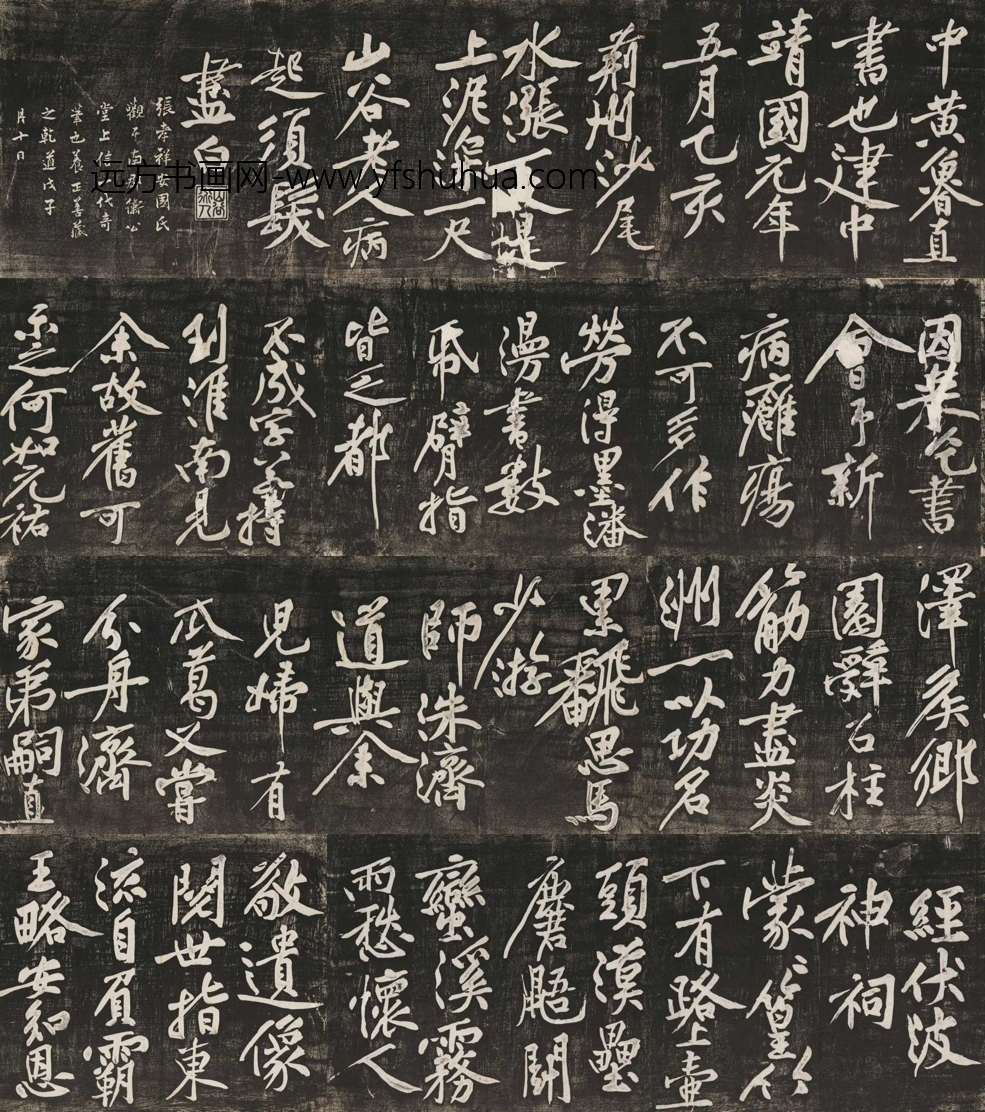 經伏波
神祠
蒙蒙篁竹
下有路上壺
頭漢壘
麏鼯鬭
蠻溪霧
雨愁懷人
敬遺像
閱世指東
流自負霸
王略安知恩
澤侯鄉
園辭石柱
筋力盡炎
洲一以功名
累飜思馬
少游
師洙濟
道與余
兒婦有
瓜葛又嘗
分舟濟
家弟嗣直
因來乞書
會予新
病癰瘍
不可多作
勞得墨瀋
漫書數
紙臂指
皆乏都
不成字若持
到淮南見
余故舊可
示之何如元祐
中黃魯直
書也建中
靖國元年
五月乙亥
荊州沙尾
水漲一丈堤
上泥深一尺
山谷老人病
起須髮
盡白
張孝祥安國氏
觀于南郡衛公
堂上信一代奇
筆也養正善藏
之乾道戊子
月十日
远方书画网-www.yfshuhua.com